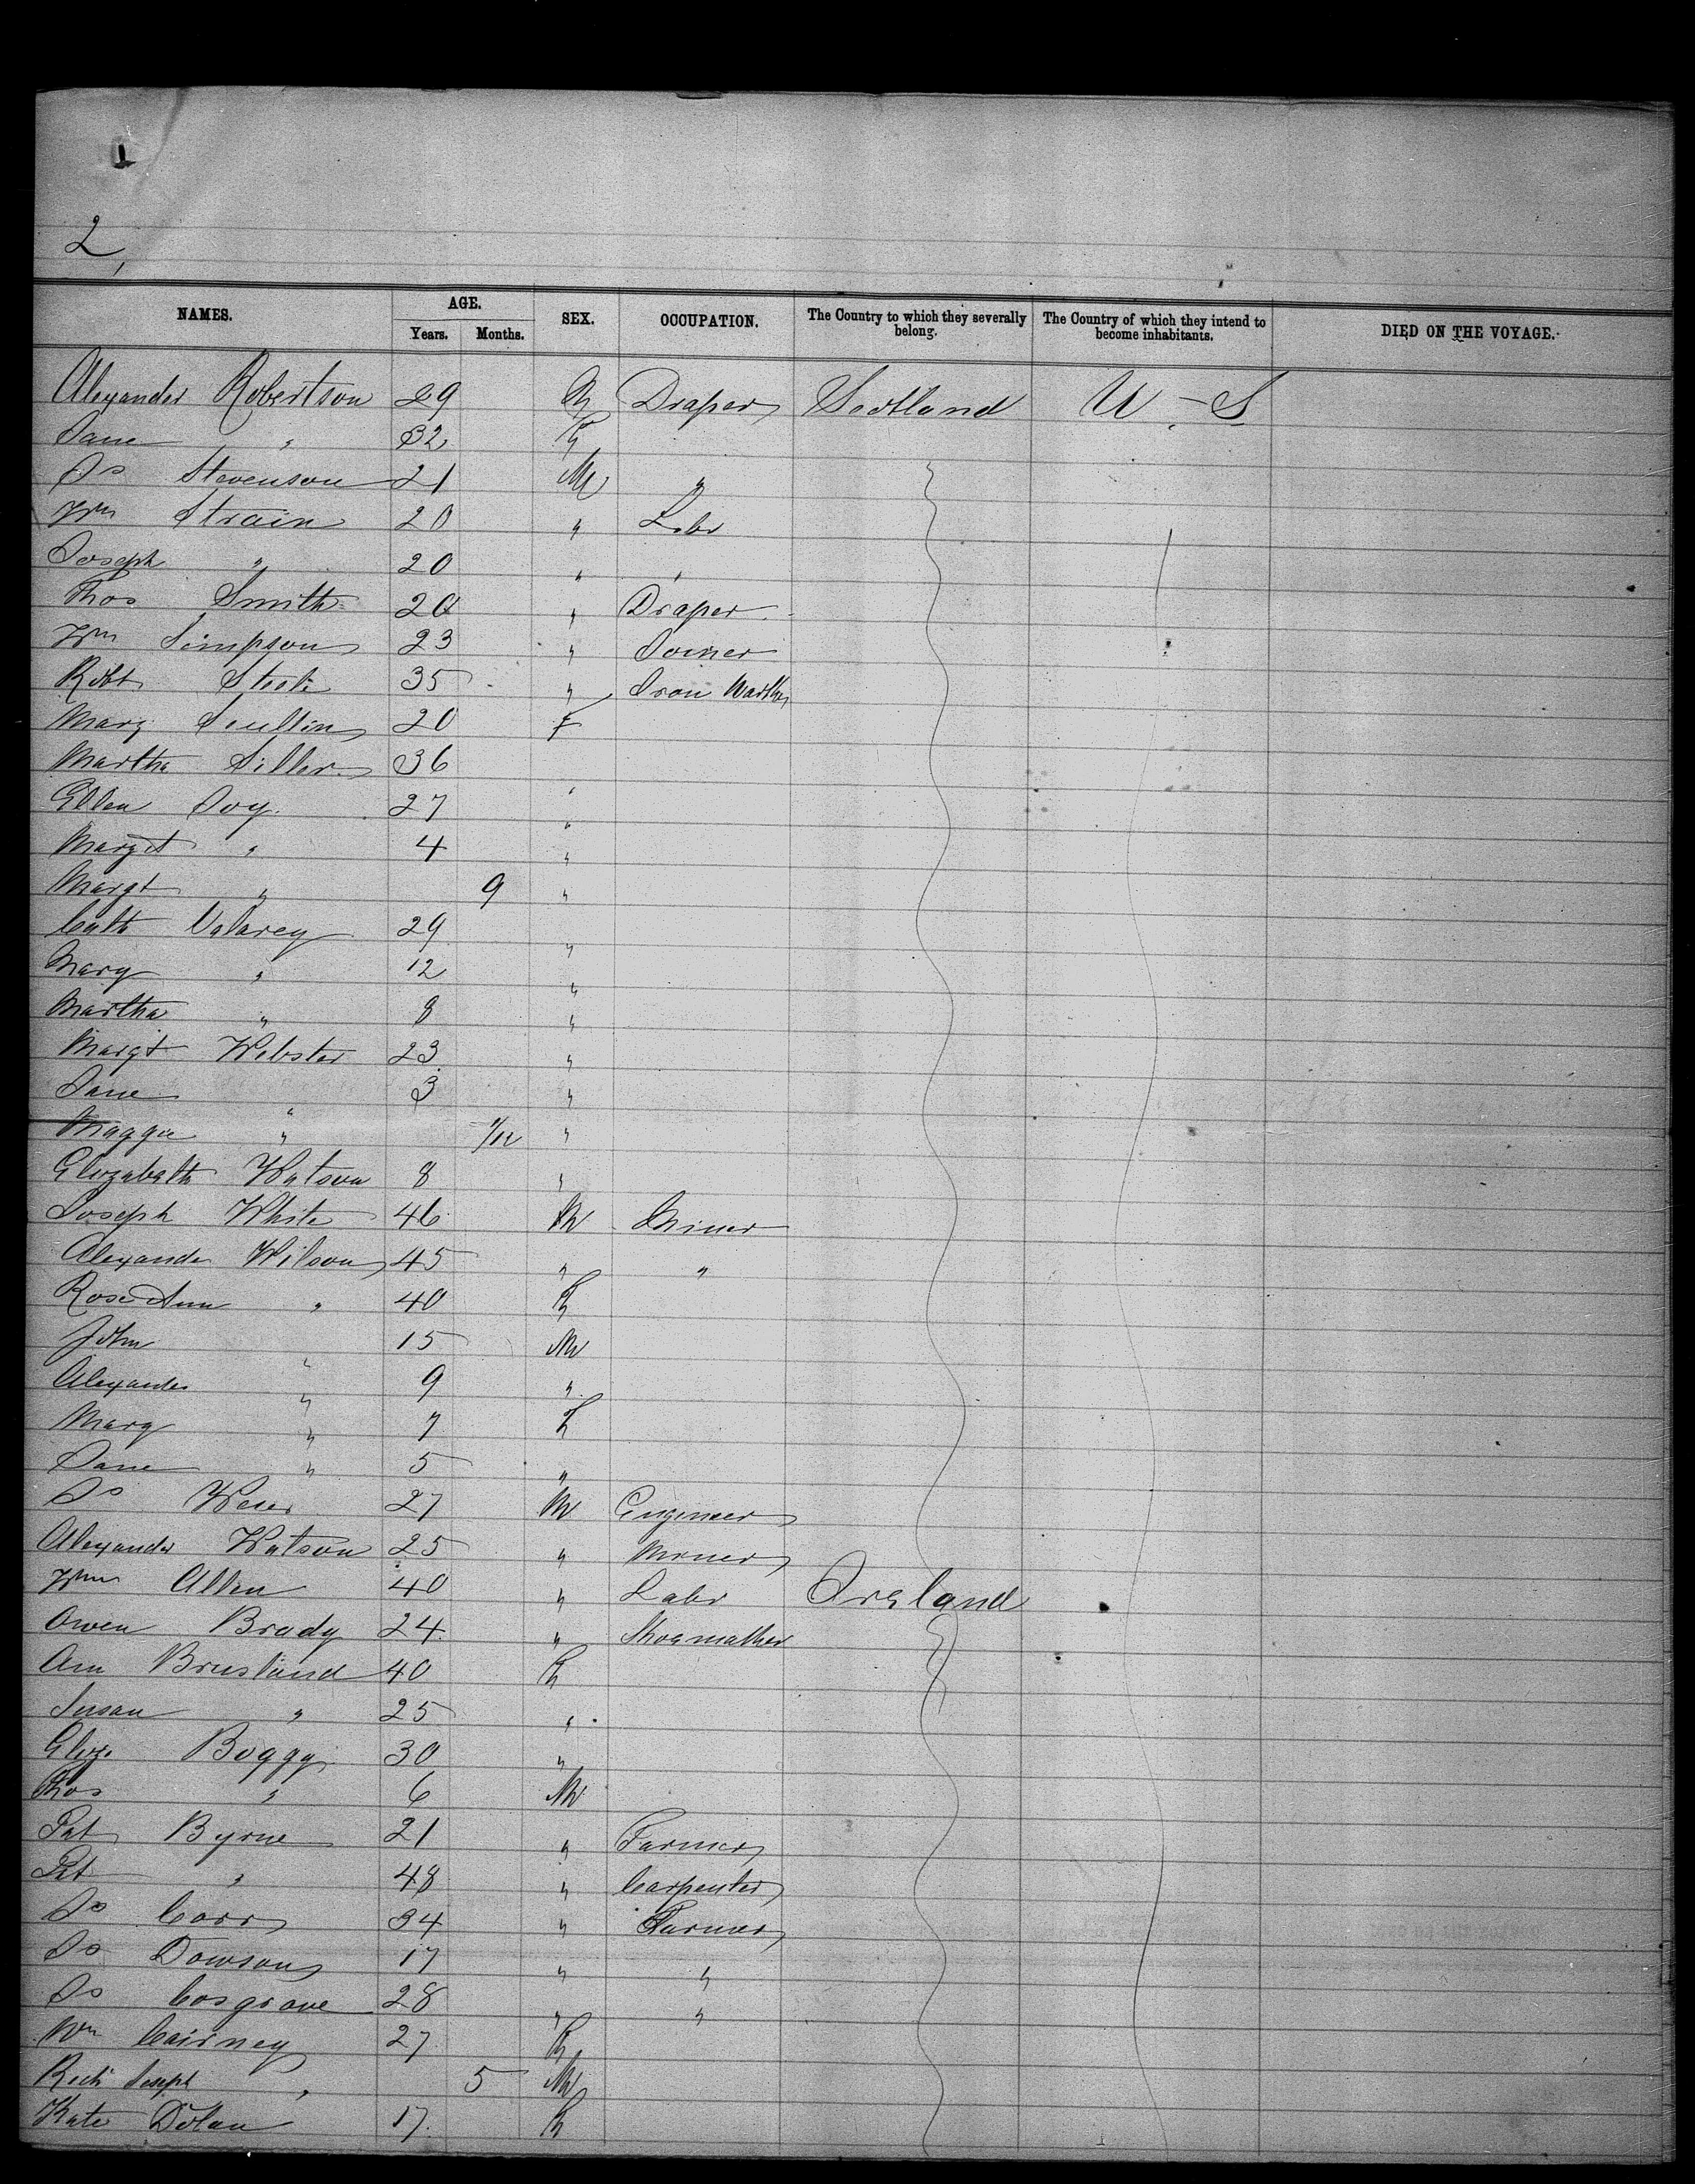 1
2,
NAMES. AGE. SEX. OCCUPATION. The Country to which they severally belong. The Country of which they intend to become inhabitants. DIED ON THE VOYAGE.
Years. Months.
Alexander Robertson 29 M Draper Scotland U-S
Jane " 32 F
Js Stevenson 21 M "
Wm Strain 20 " Labr
Joseph " 20 " "
Thos Smith 20 " Draper
Wm Simpson 23 " Joiner
Robt Steele 35 " Iron
Mary 20 F
Martha Siller 36
Ellen Joy 27 "
Marget " 4 "
Margt " 9 "
Cath 29 "
Mary " 12 "
Martha " 8 "
Margt Webster 23 "
Jane " 3 "
Maggie " 1/12 "
Elizabeth Watson 8 "
Joseph White 46 M Miner
Alexander Wilson 45 " "
Rose Ann " 40 F
John " 15 M
Alexander " 9 "
Mary " 7 F
Jane " 5 "
Js 27 M Engineer
Alexander Watson 25 " Miner
Wm Allen 40 " Labr Ireland
Owen Brady 24 " Shoemaker
Ann Brusland 40 F
Susan " 25 "
Eliza Boggy 30 "
Thos " 6 M
Pat Byrne 21 " Farmer
Pat " 48 " Carpenter
Js Carr 34 " Farmer
Js Dawson 17 " "
Js Cosgrove 28 " "
Wm Cairney 27 F
Joseph " 5 M
Kate Dolan 17 F